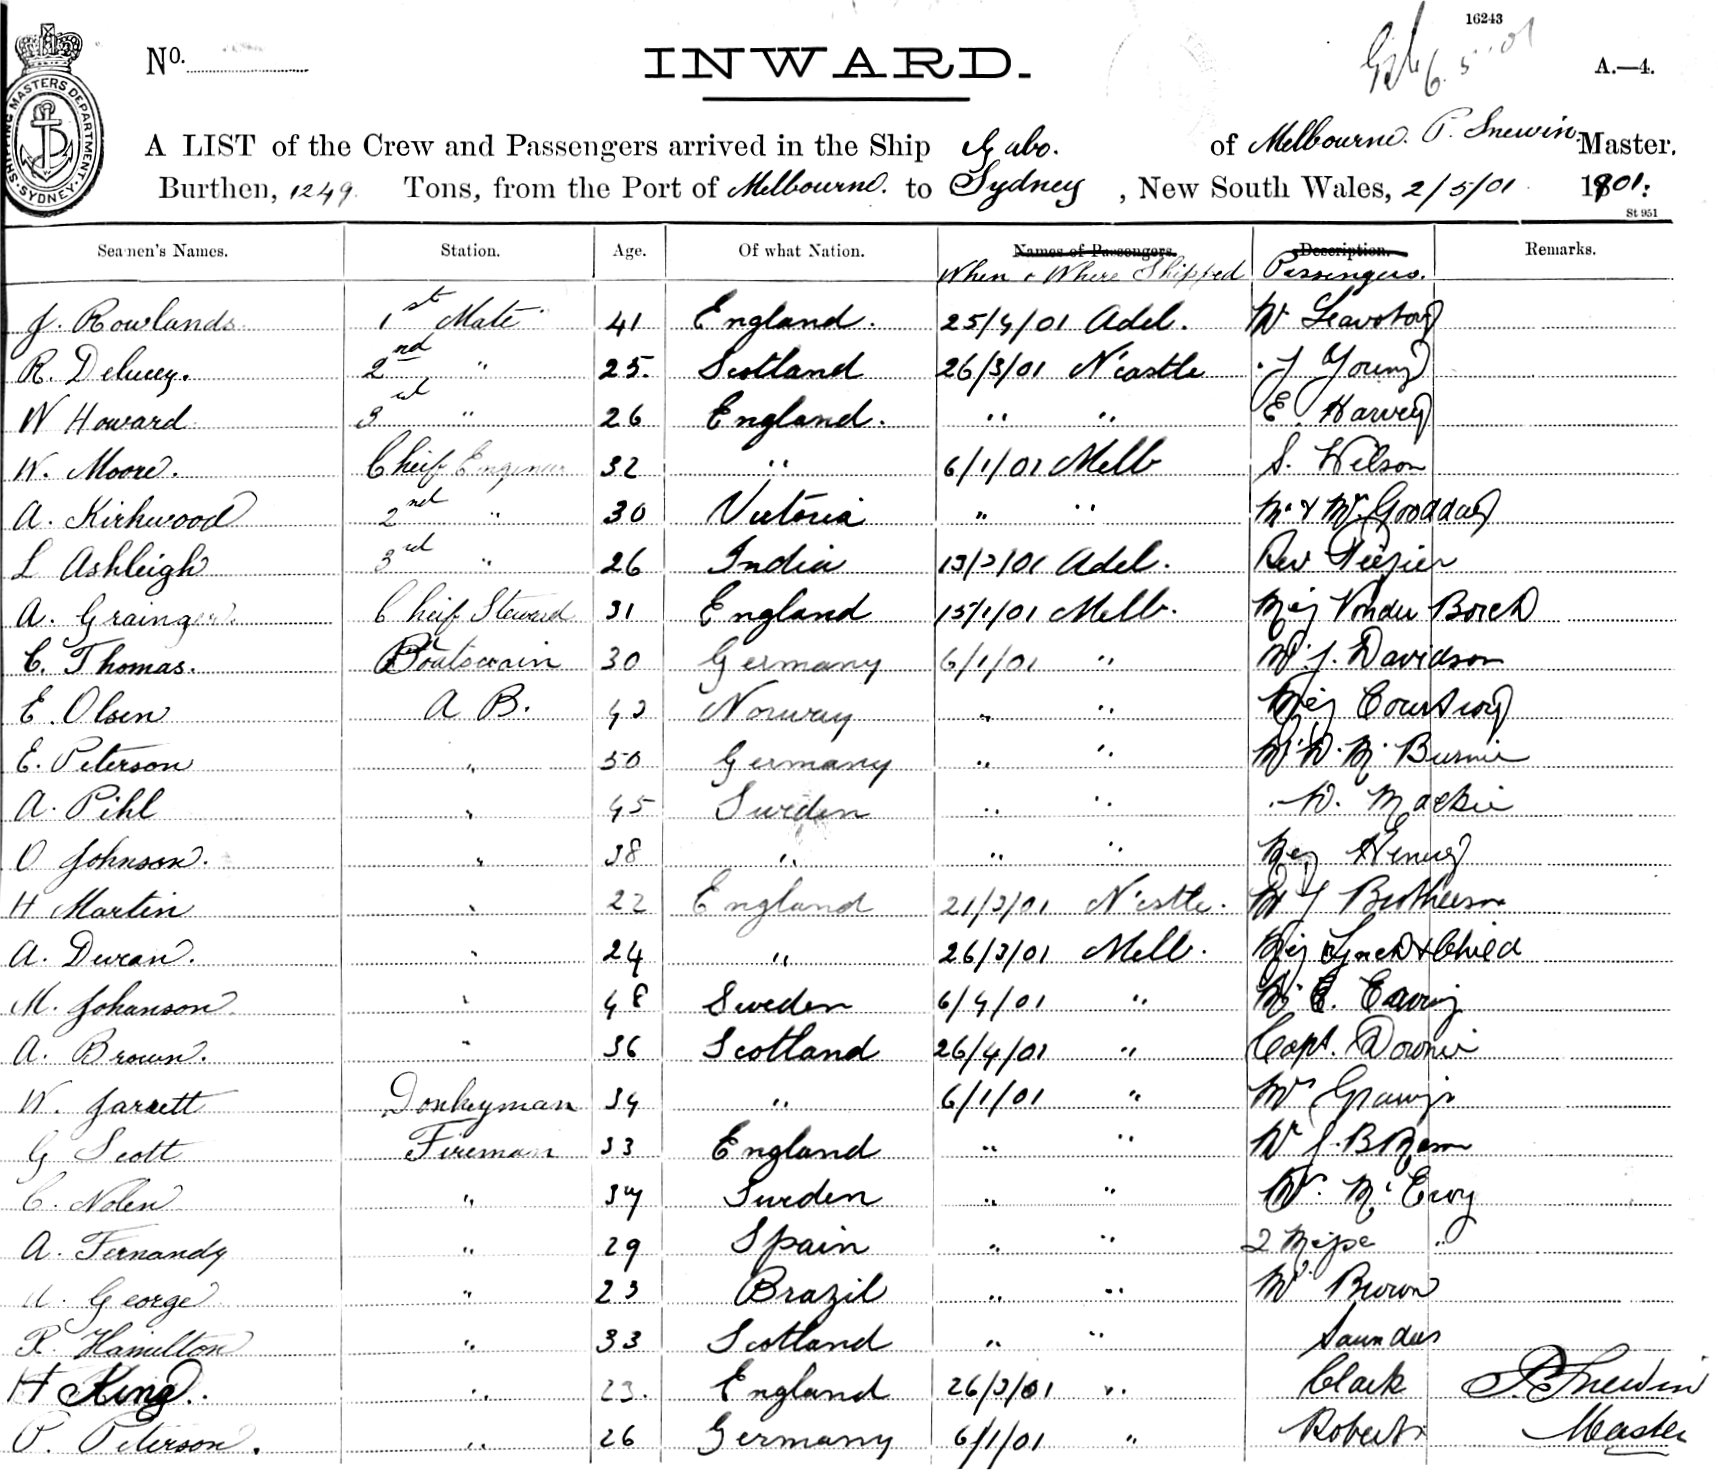 16243
6 5 01
No.
INWARD.
A.—4.
SHIPPING MASTERS DEPARTMENT SYDNEY
A LIST of the Crew and Passengers arrived in the Ship Gabo. of Melbourne. P. Snewin. Master.
Burthen, 1249 Tons, from the Port of Melbourne. to Sydney, New South Wales, 2/5/01 1901:
St 951
Seamen's Names. Station. Age. Of what Nation. Names of Passengers. Description. Remarks.
When & Where Shipped Passengers.
J. Rowlands 1st Mate 41 England. 25/4/01 Adel. Mr
R. Delucey. 2nd " 25. Scotland 26/3/01 N'castle " J Young
W Howard 3rd " 26 England. " " E. Harvey
W. Moore. Cheif Engineer 32 " 6/1/01 Melb S. Wilson
A. Kirkwood 2nd " 30 Victoria " "
L Ashleigh 3rd " 26 India 13/3/01 Adel. Rev
A. Grainger. Cheif Steward 31 England 15/1/01 Melb. Von der Borch
C. Thomas. Boatswain 30 Germany 6/1/01 " Mr. J. Davidson
E. Olsen A B. 43 Norway " "
E. Peterson " 50 Germany " " Mr D. Mc Burnie
A. Pihl " 45 Sweden " " " D. Mackie
O Johnson. " 38 " " " Henry
H Martin " 22 England 21/3/01 N'cstle. Mr J
A. Duran. " 24 " 26/3/01 Melb. Lynch & Child
M. Johanson " 48 Sweden 6/4/01 " E.
A. Brown. " 36 Scotland 26/4/01 " Capt. Downie
W. Jarrett Donkeyman 34 " 6/1/01 " Mr
G Scott Fireman 33 England " " Mr J.
C. Nolen " 34 Sweden " " Mr. Mc Evoy
A. Fernandy " 29 Spain " " 2 "
George " 23 Brazil " " Mr Brown
R. Hamilton " 33 Scotland " " Saunders
H King. " 23. England 26/3/01 " Clark P. Snewin
P. Peterson. " 26 Germany 6/1/01 " Roberts Master